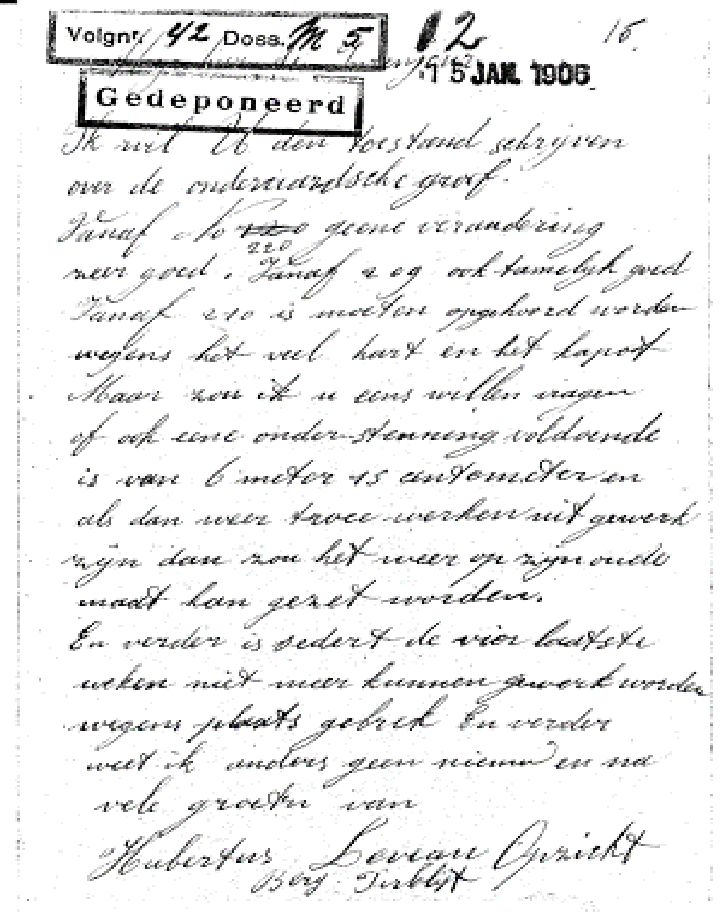 Volgnr. 42 Doss. M 5
12
15.
15 JAN. 1906
Gedeponeerd
Ik wil U den toestand schrijven
over de onderaardsche groef.
Vanaf No geene verandering
220
zeer goed. Vanaf 209 ook tamelyk goed
Vanaf 210 is moeten opgehoord worden
wegens het veel hart en het kapot
Maar zou ik u eens willen vragen
of ook eene ondersteunning voldoende
is van 6 meter 15 centometer en
als dan weer twee werken uit gewerk
zijn dan zou het weer op zijn oude
maat kan gezet worden.
En verder is sedert de vier laatste
weken niet meer kunnen gewerk worden
wegens plaats gebrek En verder
weet ik anders geen nieuw en na
vele groetn van
Hubertus Opzicht
Berg Terblijt